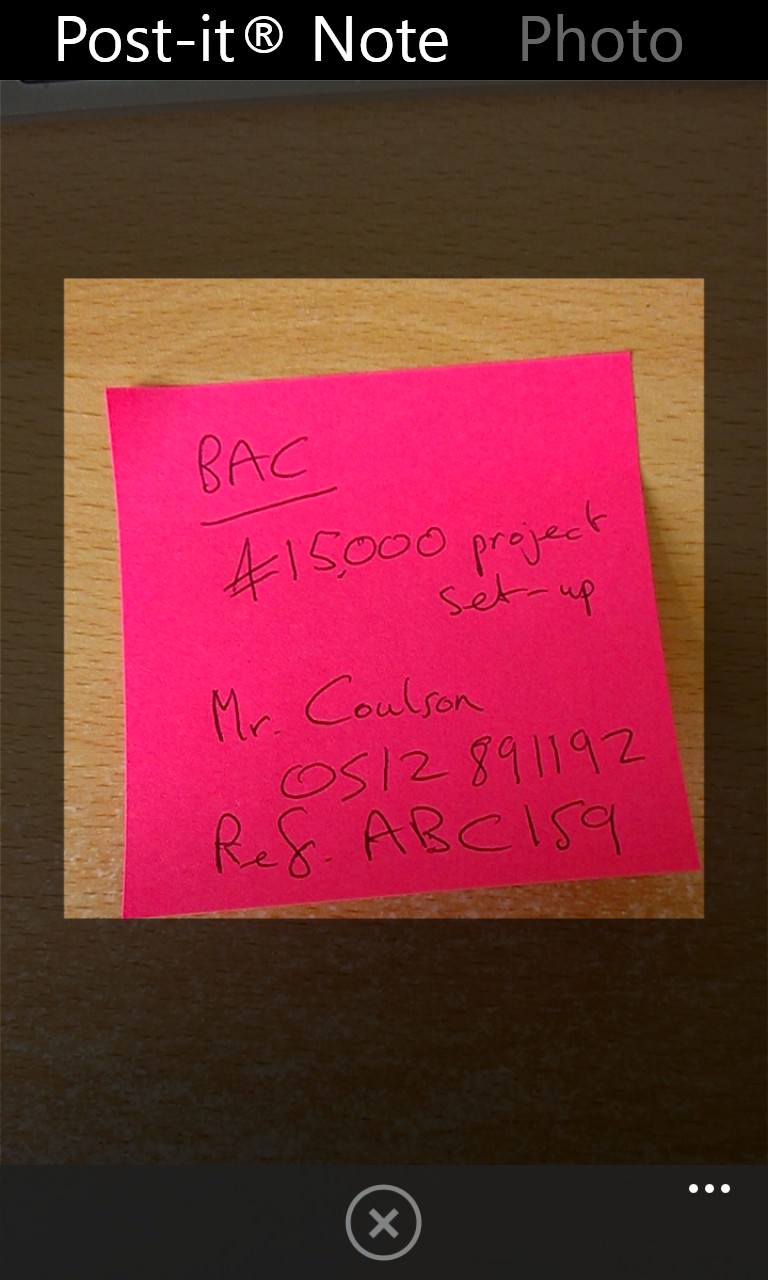 Post-it® Note Photo
BAC
£15,000 project
set-up
Mr. Coulson
0512 891192
Ref. ABC159